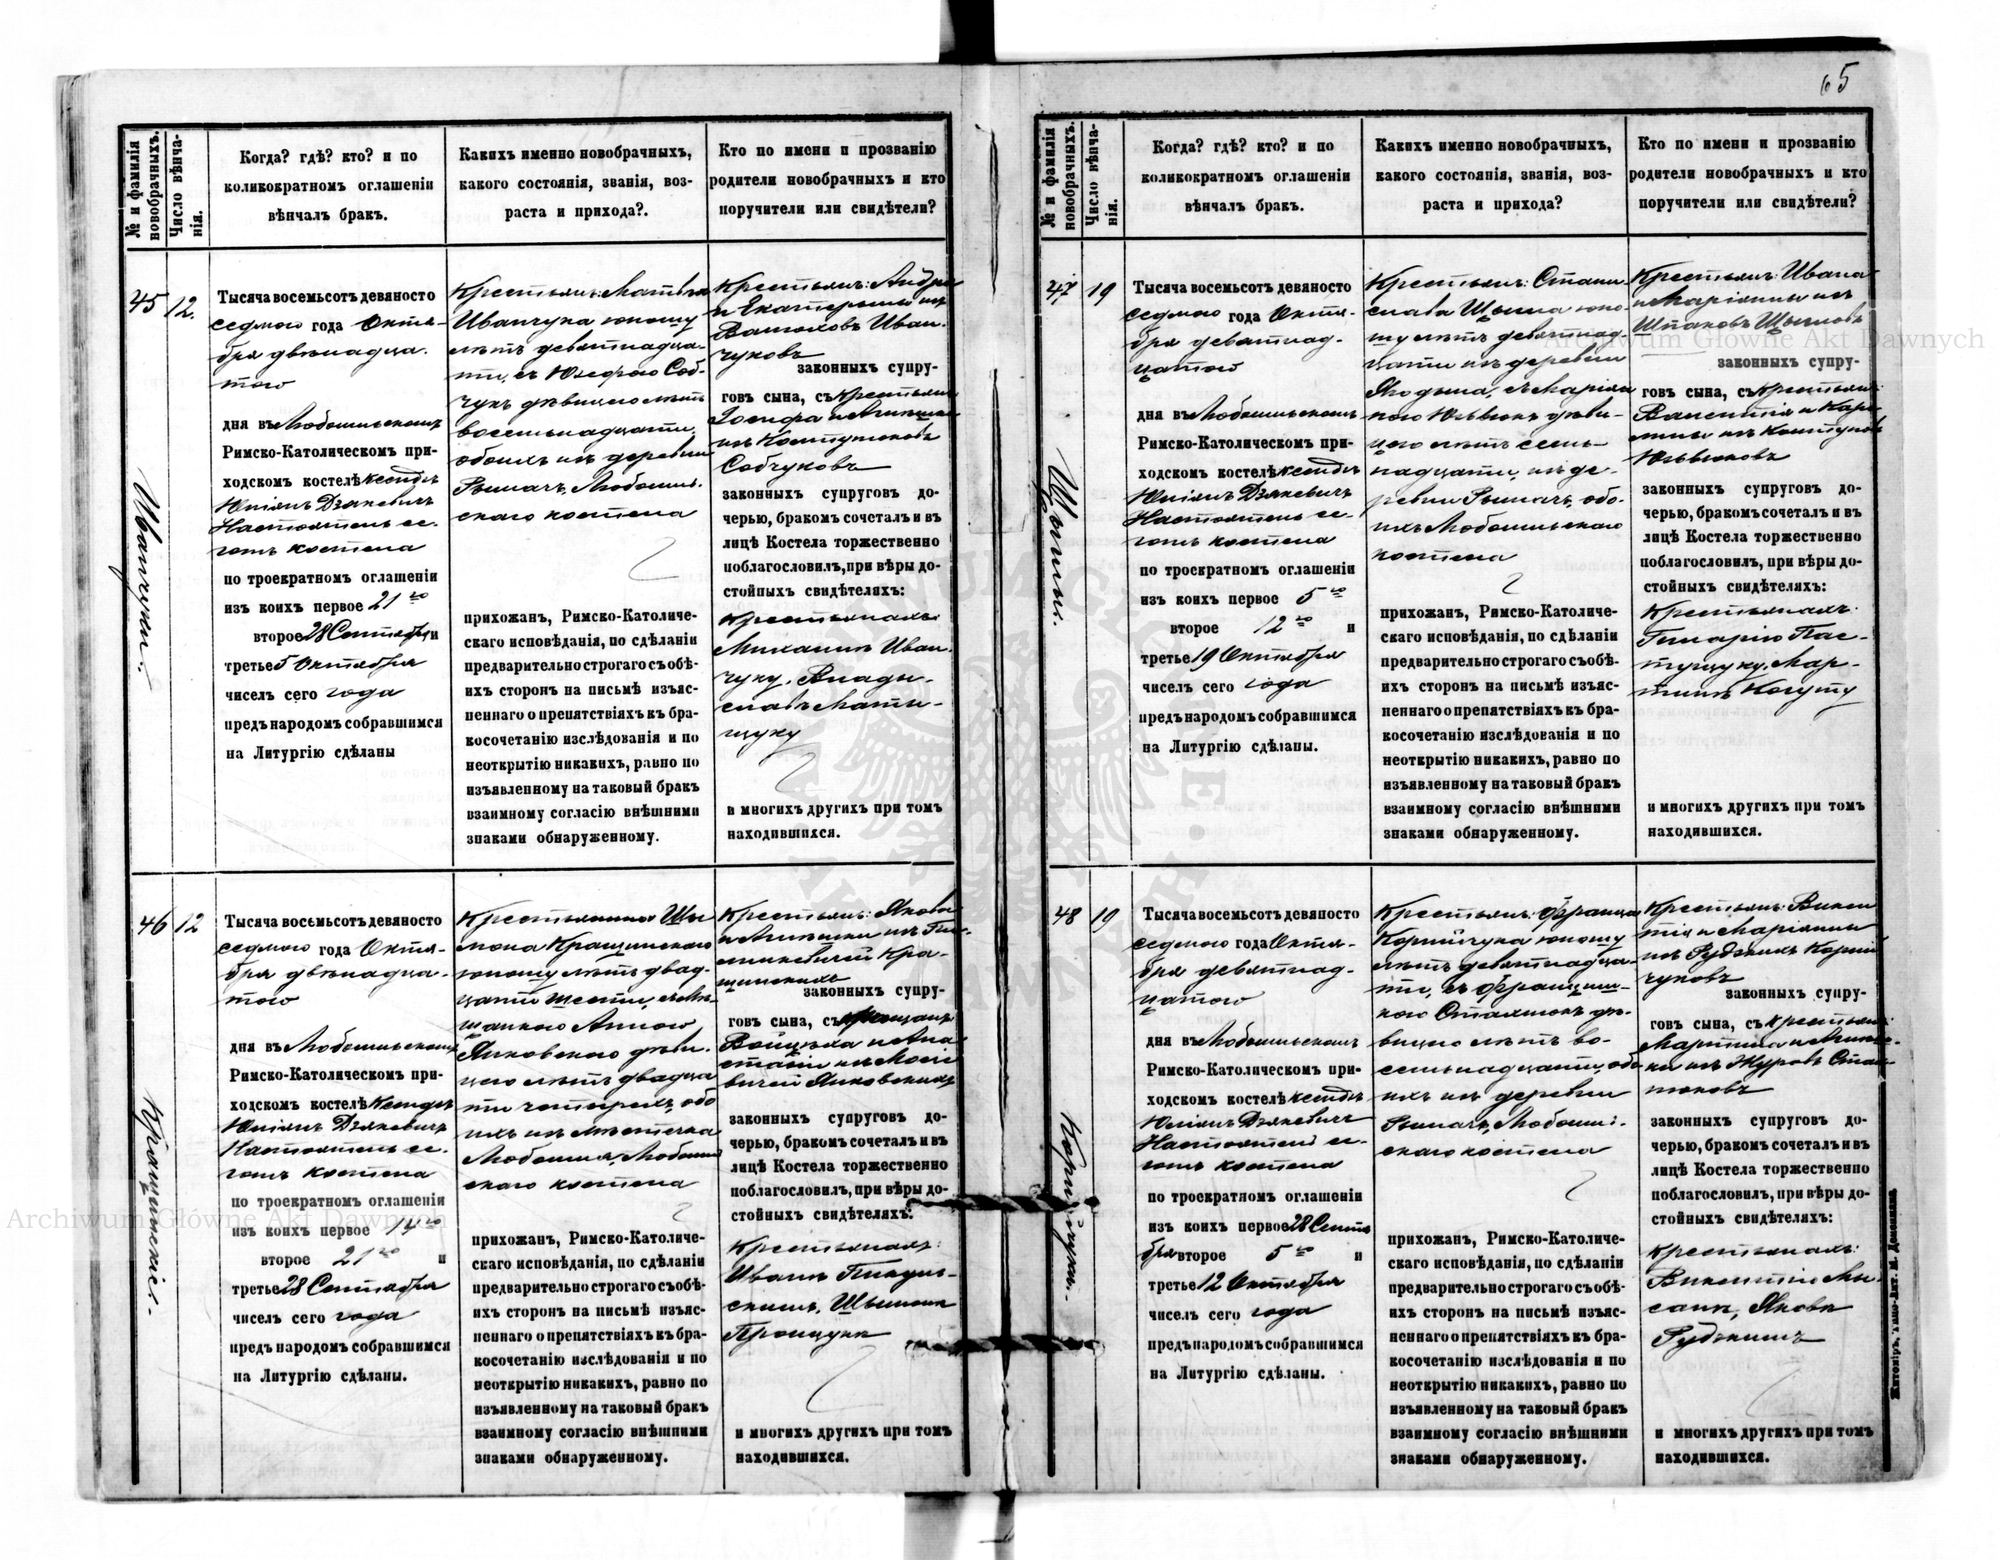 65
№ и фамилія новобрачныхъ.
Число вѣнча-
нія.
Когда? гдѣ? кто? и по
коликократном оглашеніи
вѣнчалъ бракъ.
Какихъ именно новобрачныхъ,
какого состоянія, званія, воз-
раста и прихода?.
Кто по имени и прозванію
родители новобрачныхъ и кто
поручители или свидѣтели?
45
12.
Иванчуки.
Тысяча восемьсотъ девяносто
седмого года Октя-
бря двѣнадца-
того
дня въ Любомльскомъ
Римско-Католическом при-
ходскомъ костелѣ ксендзъ
Юліянъ Дзякевичъ
Настоятель се-
гожъ костела
по троекратномъ оглашеніи
изъ коихъ первое 21го
второе 28 Сентября и
третье 5 Октября
чиселъ сего года
предъ народомъ собравшимся
на Литургію сдѣланы
Крестьян: Матвѣя
Иванчука юношу
лѣтъ девятнадца-
ти, съ Юзефою Соб-
чукъ дѣвицею лѣтъ
восемьнадцати,
обоихъ изъ деревни
Рымачъ, Любомль-
скаго костела
прихожан, Римско-Католиче-
скаго исповѣданія, по сдѣланіи
предварительно строгаго съ обѣ-
ихъ сторонъ на письмѣ изъяс-
неннаго о препятствіяхъ къ бра-
косочетанію изслѣдованія и по
неоткрытію никакихъ, равно по
изъявленному на таковый бракъ
взаимному согласію внѣшними
знаками обнаруженному.
Крестьян: Андрея
и Екатерины изъ
Иван-
чуковъ
законныхъ супру-
говъ сына, съ крестьян:
Іосифа и Агнешки
изъ Костунюковъ
Собчуковъ
законныхъ супруговъ до-
черью, бракомъ сочеталъ и въ
лицѣ Костела торжественно
поблагословилъ, при вѣры до-
стойныхъ свидѣтеляхъ:
Крестьянахъ
Михаилѣ Иван-
чуку, Влады-
славѣ Мати-
щуку
и многихъ другихъ при томъ
находившихся.
46
12
Кращинскіе.
Тысяча восемьсотъ девяносто
седмого года Октя-
бря двѣнадца-
того
дня въ Любомльскомъ
Римско-Католическомъ при-
ходскомъ костелѣ Ксендзъ
Юліянъ Дзякевичъ
Настоятель се-
гожъ костела
по троекратномъ оглашеніи
изъ коихъ первое 14го
второе 21го и
третье 28 Сентября
чиселъ сего года
предъ народомъ собравшимся
на Литургію сдѣланы.
Крестьянина Шы-
мона Кращинского
юношу лѣтъ двад-
цати шести, съ мѣ-
щанкою Анною
Янковскою дѣви-
цею лѣтъ двадца
ти четырехъ, обо
ихъ изъ мѣстечка
Любомля, Любомль
скаго костела
прихожан, Римско-Католиче-
скаго исповѣданія, по сдѣланіи
предварительно строгаго съ обѣ-
ихъ сторонъ на письмѣ изъяс-
неннаго о препятствіяхъ къ бра-
косочетанію изслѣдованія и по
неоткрытію никакихъ, равно по
изъявленному на таковый бракъ
взаимному согласію внѣшними
знаками обнаруженному.
Крестьян: Якова
и Агнешки изъ
Кра-
щинскихъ
законныхъ супру-
говъ сына, съ мѣщанъ
Войцѣха и Ана
стасіи изъ
Янковскихъ
законныхъ супруговъ до-
черью, бракомъ сочеталъ и въ
лицѣ Костела торжественно
поблагословилъ, при вѣры до-
стойныхъ свидѣтеляхъ:
Крестьянахъ:
Иванѣ
Шымонѣ
Прощукѣ
и многихъ другихъ при томъ
находившихся.
№ и фамилія новобрачныхъ.
Число вѣнча-
нія.
Когда? гдѣ? кто? и по
коликократном оглашеніи
вѣнчалъ бракъ.
Какихъ именно новобрачныхъ,
какого состоянія, званія, воз-
раста и прихода?
Кто по имени и прозванію
родители новобрачныхъ и кто
поручители или свидѣтели?
47
19
Щыглы.
Тысяча восемьсотъ девяносто
седмого года Октя-
бря девятнад-
цатого
дня въ Любомльскомъ
Римско-Католическом при-
ходском костелѣ ксендзъ
Юліянъ Дзякевичъ
Настоятель се-
гожъ костела
по троекратномъ оглашеніи
изъ коихъ первое 5го
второе 12го и
третье 19 Октября
чиселъ сего года
предъ народомъ собравшимся
на Литургію сдѣланы.
Крестьян: Стани
слава Щыгла юно-
шу лѣтъ девятнад-
цати изъ деревни
Ягодына, съ Маріян
ною Юзвюкъ дѣви-
цею лѣтъ семь-
надцати, изъ де-
ревни Рымачъ, обо-
ихъ Любомльскаго
костела
прихожан, Римско-Католиче-
скаго исповѣданія, по сдѣланіи
предварительно строгаго съ обѣ-
ихъ сторонъ на письмѣ изъяс-
неннаго о препятствіяхъ къ бра-
косочетанію изслѣдованія и по
неоткрытію никакихъ, равно по
изъявленному на таковый бракъ
взаимному согласію внѣшними
знаками обнаруженному.
Крестьян: Ивана
и Маріянны изъ
Шпаковъ Щыгловъ
законныхъ супру-
говъ сына, съ крестьян:
Валентія и Каро-
лины изъ
Юзвюковъ
законныхъ супруговъ до-
черью, бракомъ сочеталъ и въ
лицѣ Костела торжественно
поблагословилъ, при вѣры до-
стойныхъ свидѣтеляхъ:
Крестьянахъ:
Гилярію Пас-
тущуку, Мар-
тинѣ Когуту
и многихъ другихъ при томъ
находившихся.
48
19
Корнійчуки.
Тысяча восемьсотъ девяносто
седмого года Октя-
бря девятнад-
цатого
дня въ Любомльскомъ
Римско-Католическом при-
ходскомъ костелѣ ксендзъ
Юліянъ Дзякевичъ
Настоятель се-
гожъ костела
по троекратномъ оглашеніи
изъ коихъ первое 28 Сентя
бря второе 5го и
третье 12 Октября
чиселъ сего года
предъ народомъ собравшимся
на Литургію сдѣланы.
Крестьян: Францa
Корнійчука юношу
лѣтъ девятнадца-
ти, съ Францишк-
кою Стахнюкъ дѣ-
вицею лѣтъ во-
семьнадцати, обо
ихъ изъ деревни
Рымачъ, Любомль-
скаго костела
прихожан, Римско-Католиче-
скаго исповѣданія, по сдѣланіи
предварительно строгаго съ обѣ-
ихъ сторонъ на письмѣ изъяс-
неннаго о препятствіяхъ къ бра-
косочетанію изслѣдованія и по
неоткрытію никакихъ, равно по
изъявленному на таковый бракъ
взаимному согласію внѣшними
знаками обнаруженному.
Крестьян: Викен
тія и Маріянны
изъ Рудзкихъ Корній
чуковъ
законныхъ супру-
говъ сына, съ крестьян:
Мартина и Агнеш-
ки изъ Журовъ Стах-
нюковъ
законныхъ супруговъ до-
черью, бракомъ сочеталъ и въ
лицѣ Костела торжественно
поблагословилъ, при вѣры до-
стойныхъ свидѣтеляхъ:
Крестьянахъ:
Викентію
Яковѣ
Рудзкимъ
и многихъ другихъ при томъ
находившихся.
Житоміръ, Типо-Лит. М. Дененмана.
Archiwum Główne Akt Dawnych
Archiwum Główne Akt Dawnych